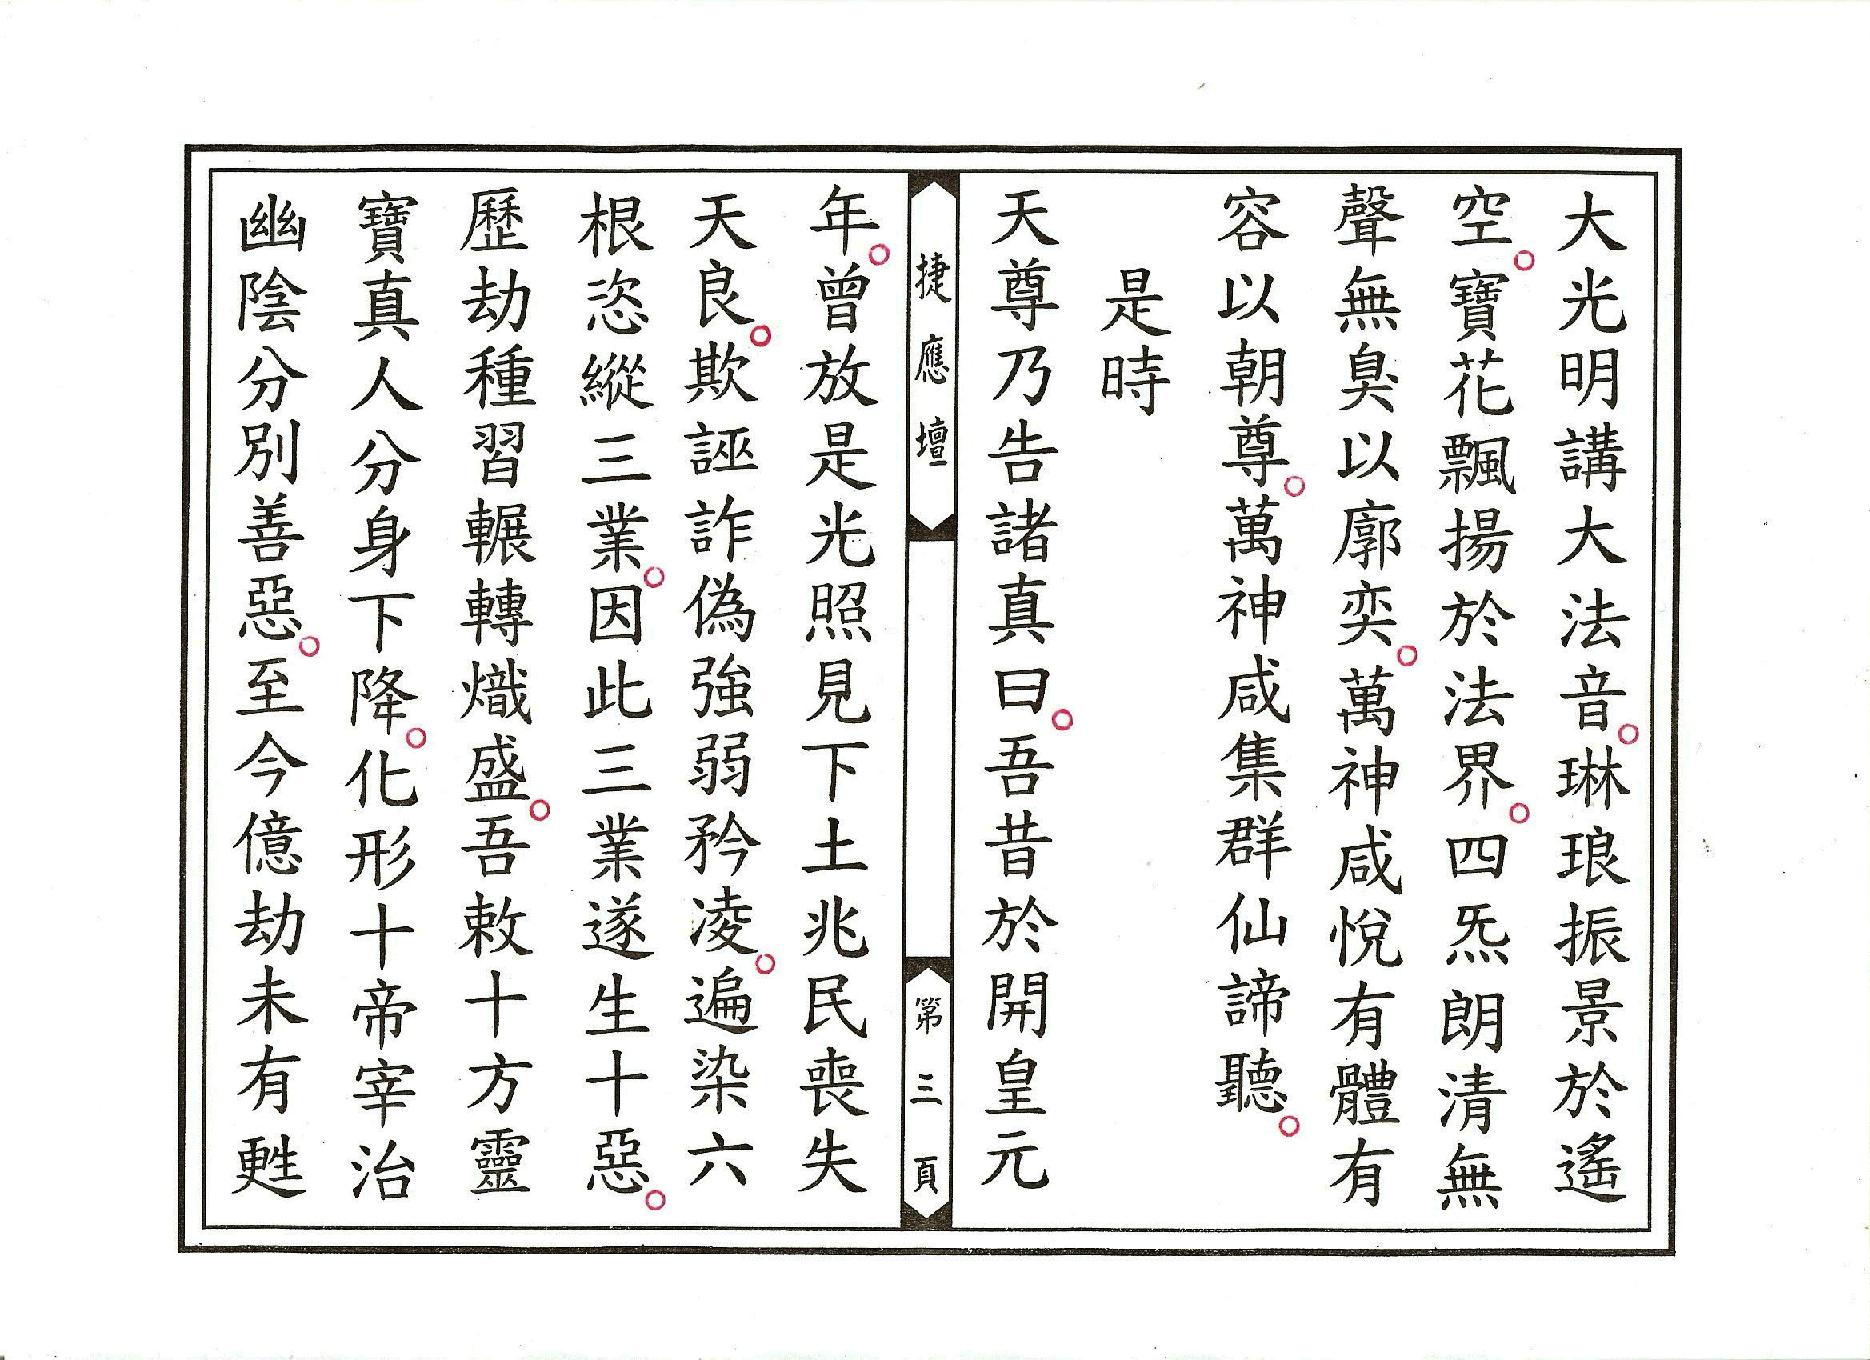 大光明講大法音。琳琅振景於遙
空。寶花飄揚於法界。四炁朗清無
聲無臭以廓奕。萬神咸悅有體有
容以朝尊。萬神咸集群仙諦聽。
是時
天尊乃告諸真曰。吾昔於開皇元
捷應壇
第三頁
年。曾放是光照見下土兆民喪失
天良。欺誣詐偽強弱矜凌。遍染六
根恣縱三業。因此三業遂生十惡。
歷劫種習輾轉熾盛。吾敕十方靈
寶真人分身下降。化形十帝宰治
幽陰分別善惡。至今億劫未有甦